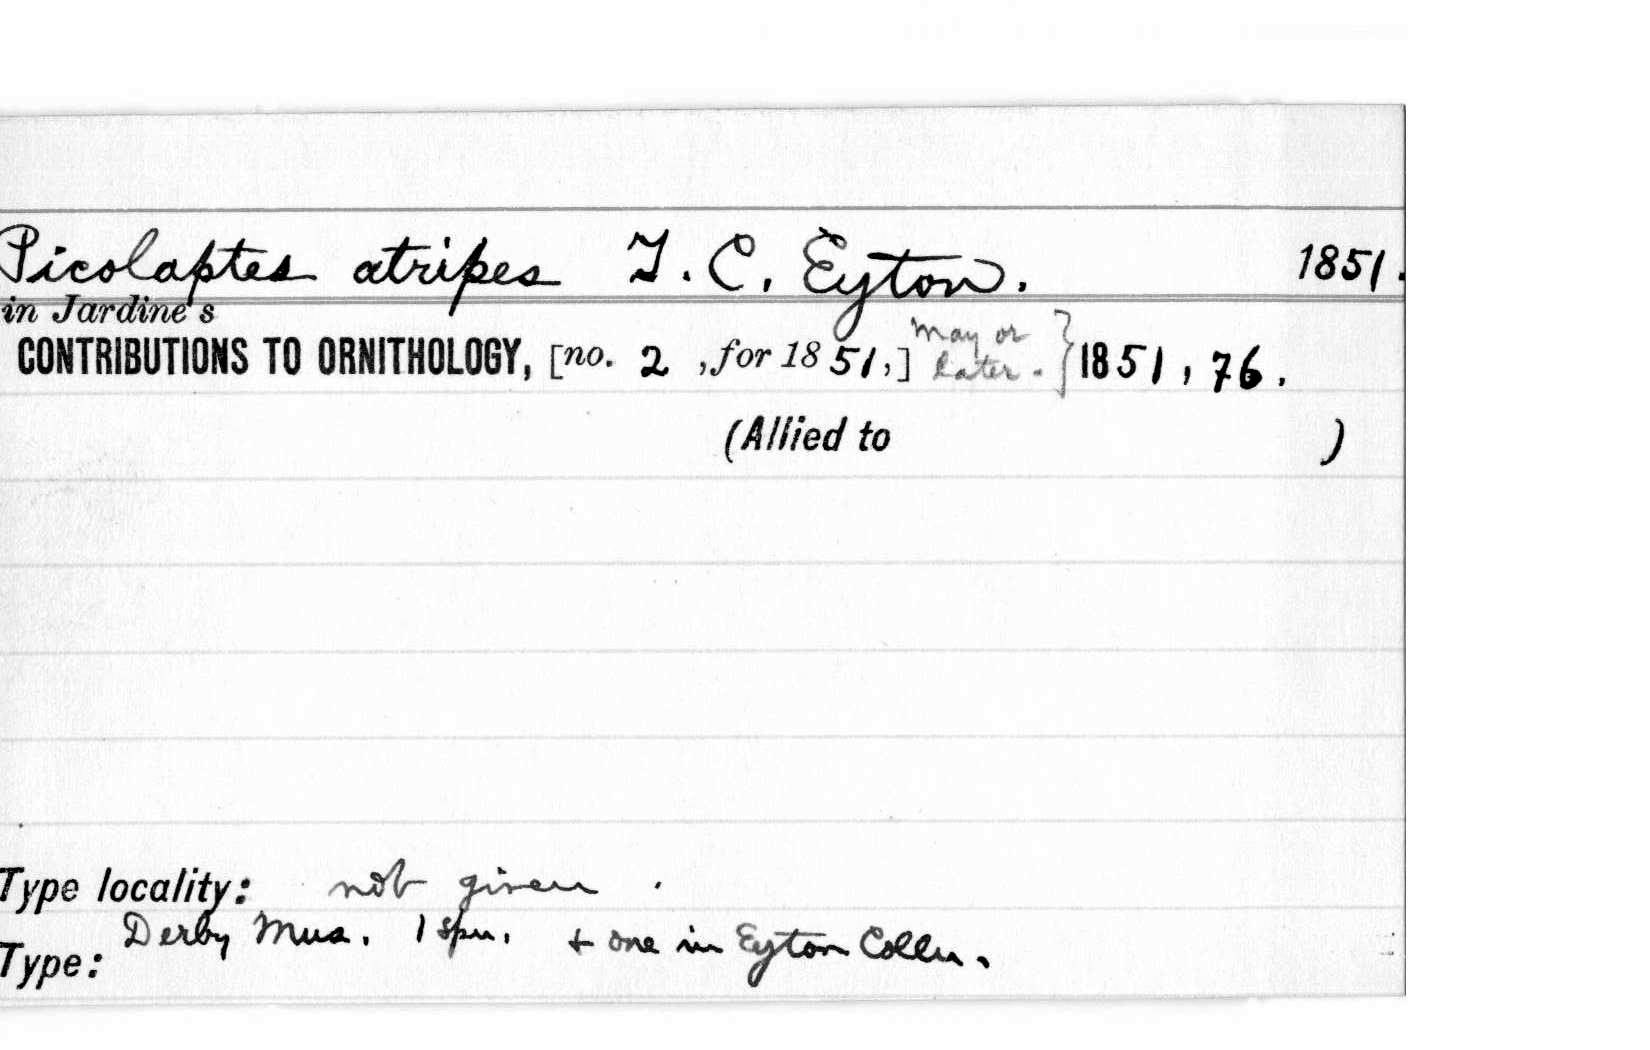 Picolaptes atripes T. C. Eyton. 1851.
in Jardine's
CONTRIBUTIONS TO ORNITHOLOGY, [no. 2 , for 1851,] May or later. } 1851, 76.
(Allied to )
Type locality: not given .
Derby Mus. 1 spn. + one in Eyton Colln.
Type: